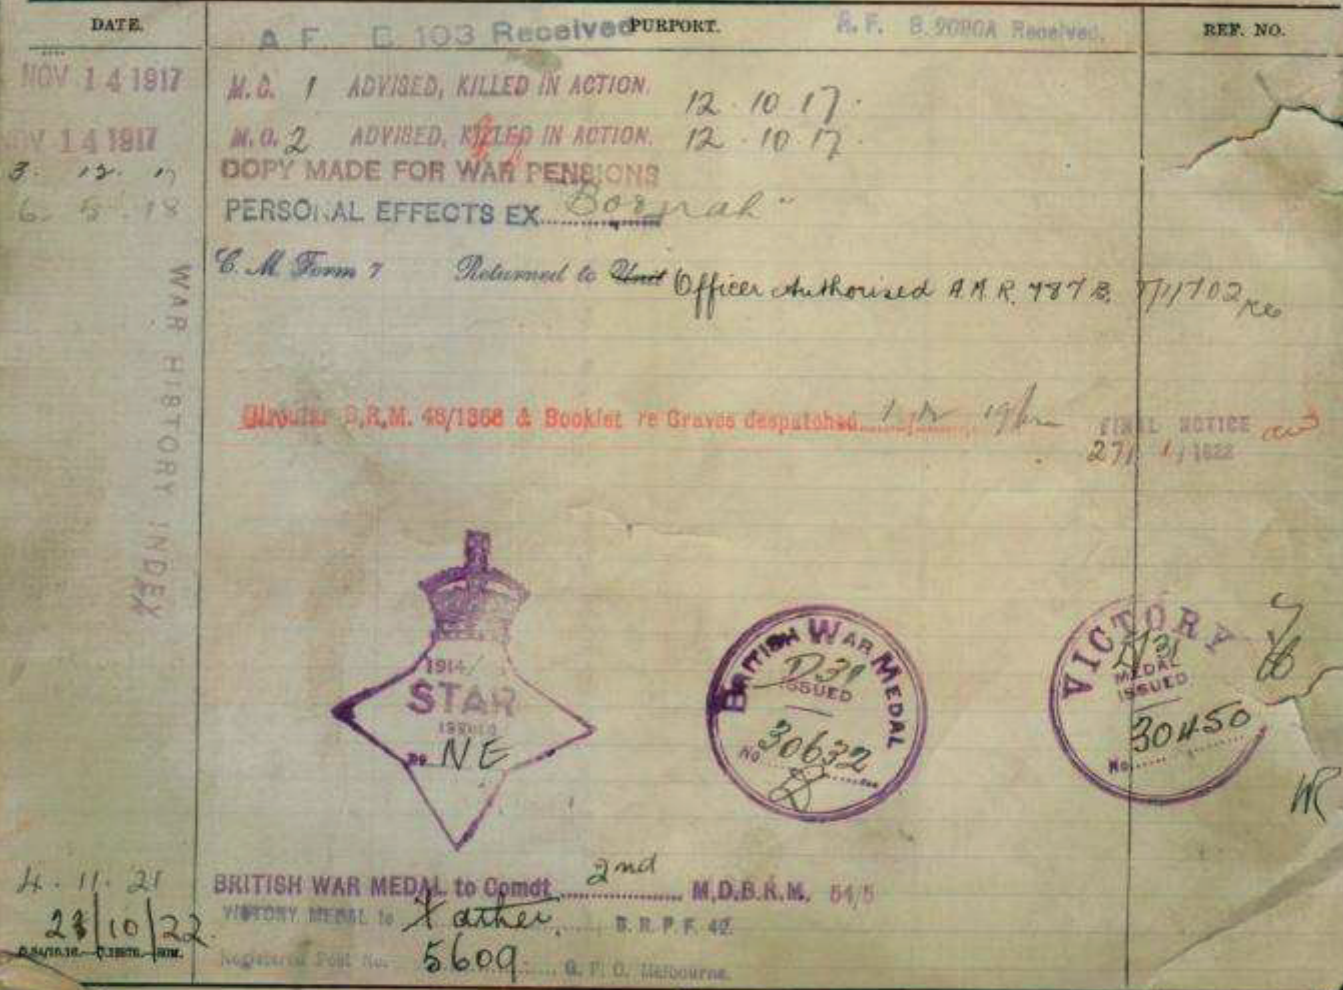 DATE. PURPORT. REF. NO.
A F. B 103 Received A. F. B. 2090A Received.
NOV 14 1917 M.C. 1 ADVISED, KILLED IN ACTION. 12.10.17.
NOV 14 1917 M.C. 2 ADVISED, KILLED IN ACTION. 12.10.17.
3. 12. 17 COPY MADE FOR WAR PENSIONS
6. 5. 18 PERSONAL EFFECTS EX
C. M. Form 7 Returned to Unit Officer Authorised A.M.R. 787B.
WAR HISTORY INDEX
Circular B.R.M. 46/1368 & Booklet re Graves despatched
FINAL NOTICE
27/ 1/1922
1914/
STAR
ISSUED
No NE
BRITISH WAR MEDAL
D31
ISSUED
No 30632
VICTORY
D/31
MEDAL
ISSUED
30450
No
4.11.21 BRITISH WAR MEDAL to Comdt 2nd M.D.B.R.M. 54/5
23/10/22 VICTORY MEDAL to Father, B.R.P.F. 42.
Registered Post No. 5609 G.P.O. Melbourne.